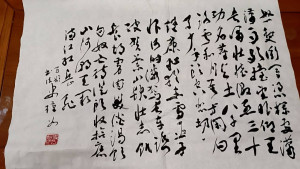 怒髮冲冠憑欄處瀟
瀟雨歇抬望眼仰天
長嘯壯懷激烈三十
功名塵與土八千里
路雲和月莫等閑白
了少年头空悲切
靖康耻猶未雪臣子
恨何時滅駕長車踏
破賀蘭山缺壯志飢
餐胡虜肉笑談渴飲
匈奴血待從頭收拾舊
山河朝天闕
滿江紅岳飛